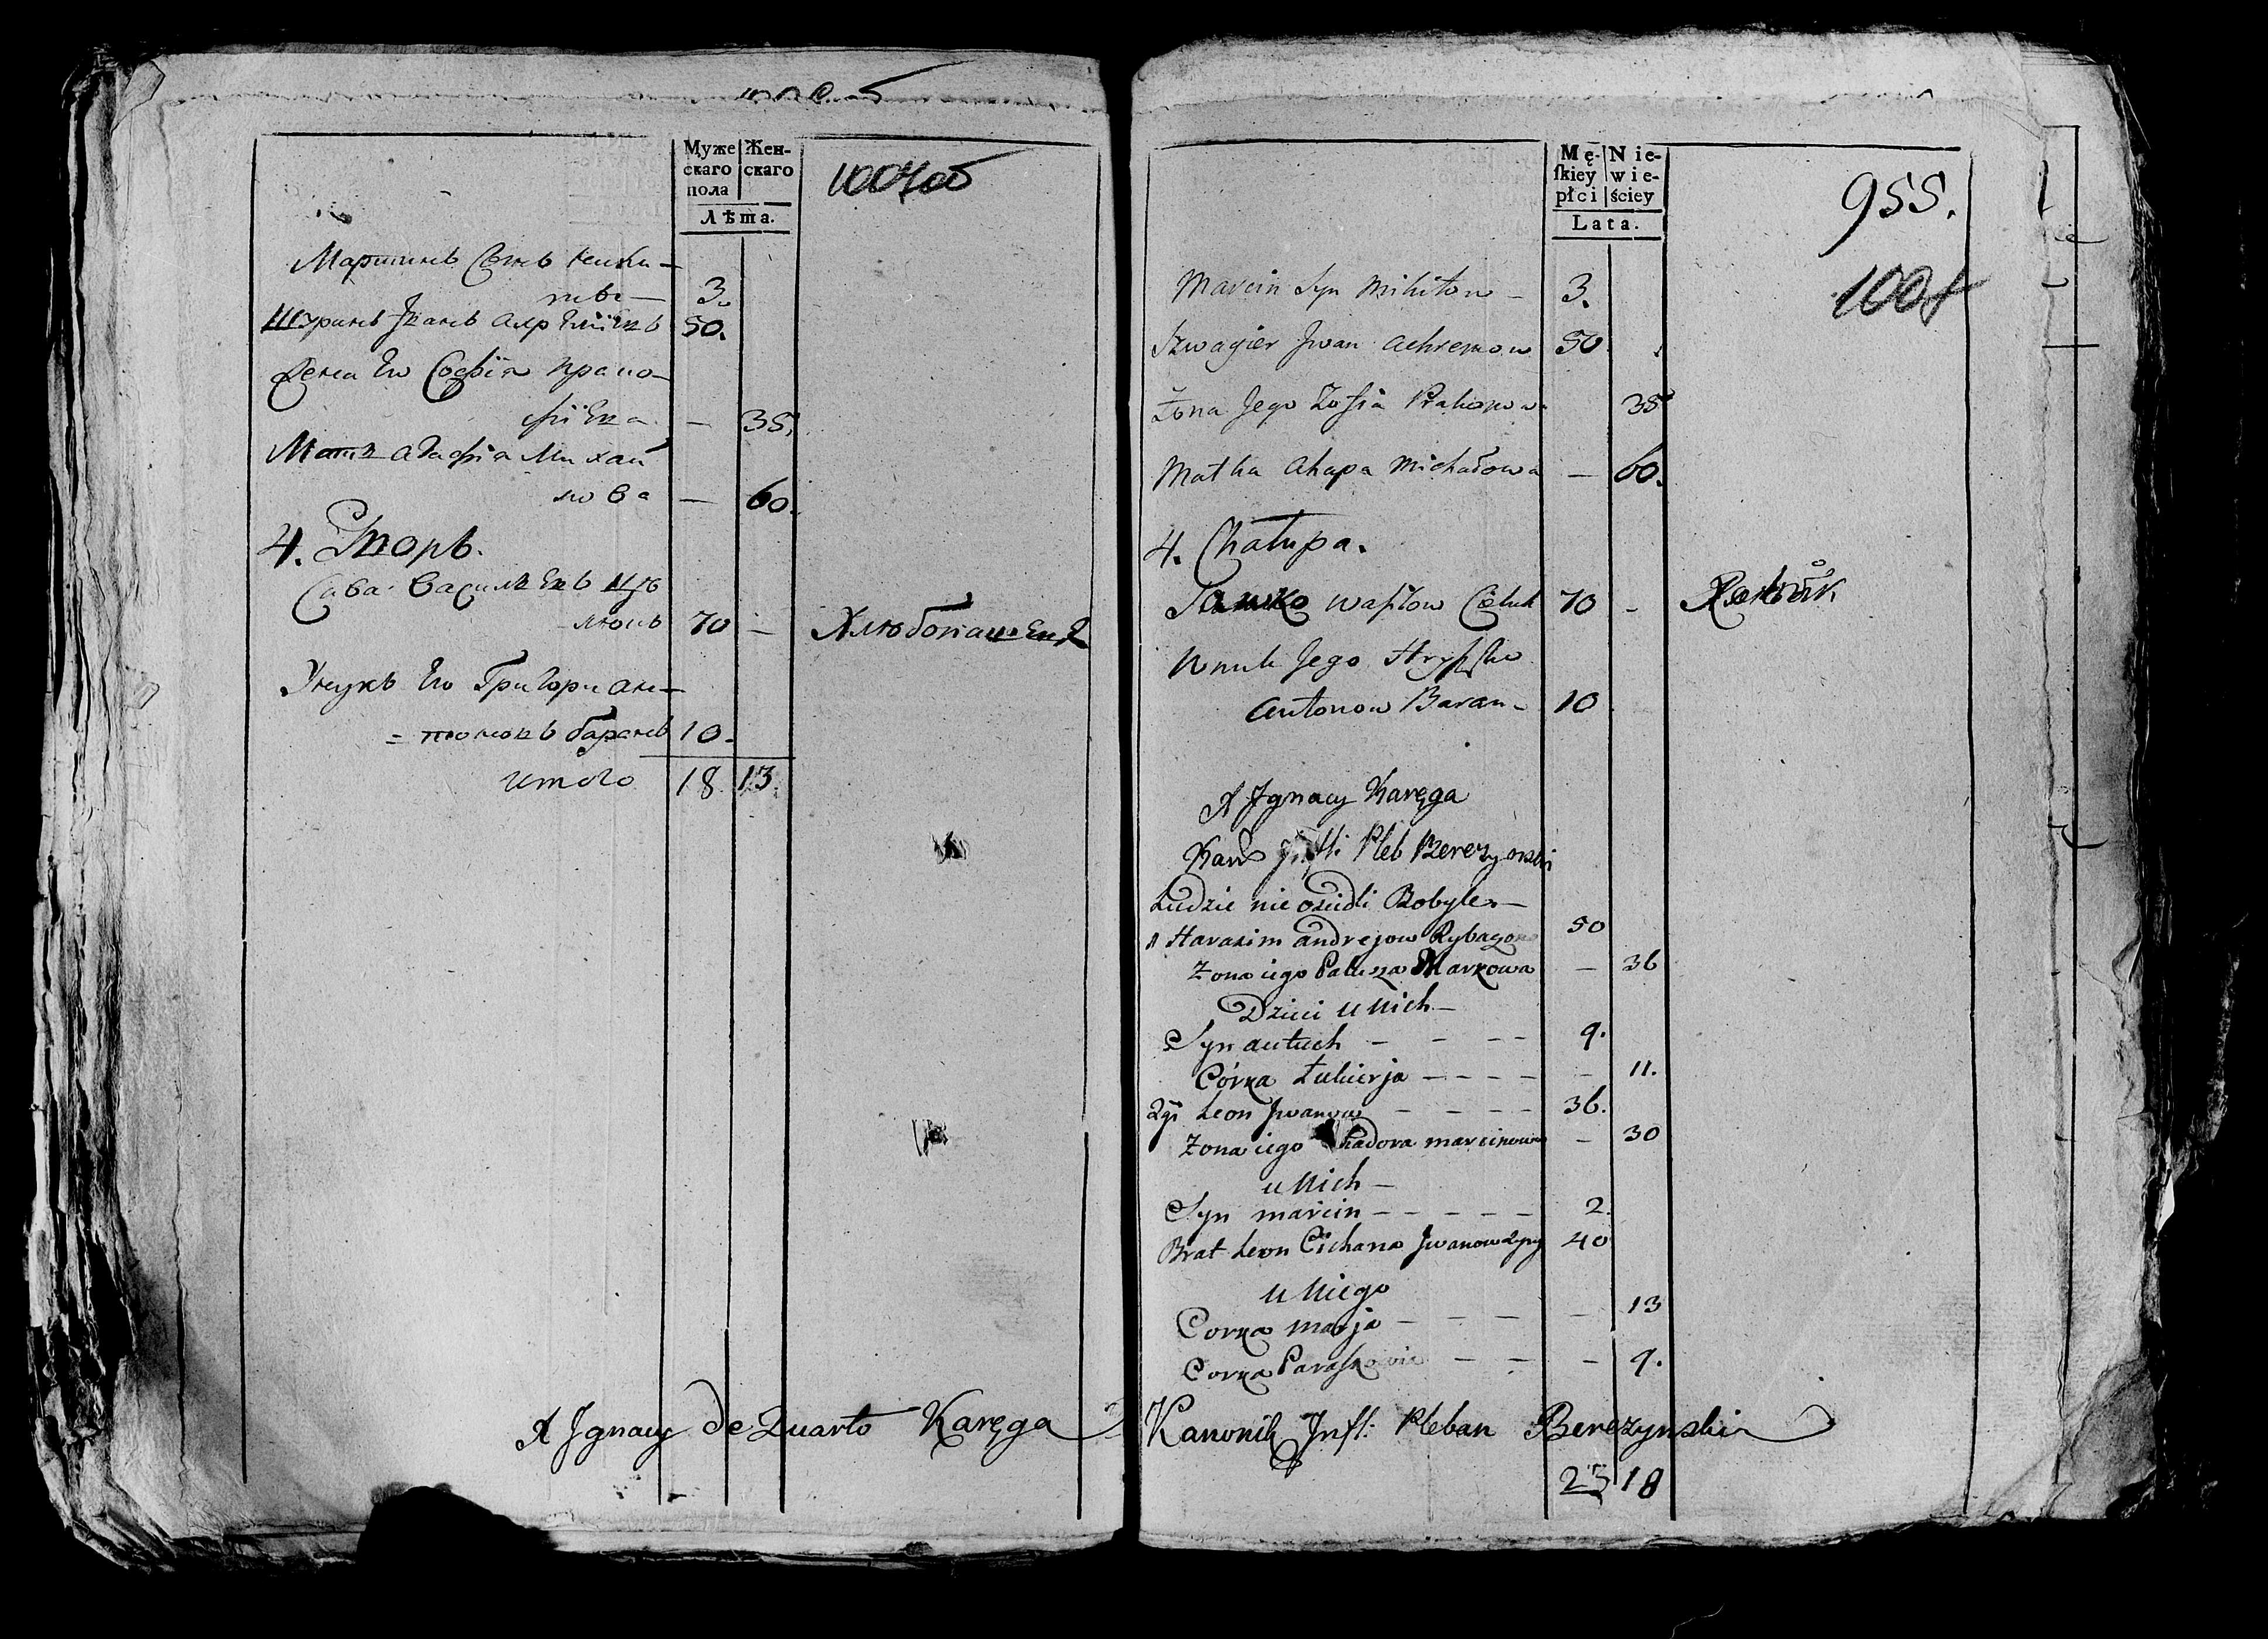 Муже Жен-
скаго скаго
пола
Лѣта.
Мартинъ Сынъ Ники-
3.
Шуринъ Іванъ 50.
Жена Ево Софія Прако-
— 35.
Мать Агафія Михай
лова — 60.
4. Дворъ.
Сава Василевъ
70 — Хлѣбопашецъ
Унукъ Ево Григори Ан-
= тоновъ Баранъ 10.
итого 18 13.
Mę- Nie-
ſkiey wie-
płci ściey
Lata.
955.
Marcin Syn Mikitow — 3.
Szwagier Jwan Achremow 50
Żona Jego Zofia Prakopowa 35
Matka Ahapa Michałowa — 60.
4. Chałupa.
Sawko Wasilow 70 — Rolnik
Wnuk Jego Hryszko
Antonow Baran — 10
X Jgnacy Karęga
Kan Jnfl: Pleb Berezynski
Ludzie nie osiedli Bobyle —
1 Harasim Andrejow 50
Żona iego Markowa — 36
Dzieci u Nich —
Syn Autuch — — — — 9.
Córka Łukierja — — — — 11.
2gi Leon Jwanow — — — — 36.
Żona iego Chadora Marcinowa — 30
u Nich —
Syn Marcin — — — — — 2.
Brat Leon Cichana Jwanow 40
u Niego
Corka Marja — — — — 13
Corka Paraskowia — — — 9.
X Jgnacy de Quarto Karęga Kanonik Jnfl: Pleban Berezynski
23 18